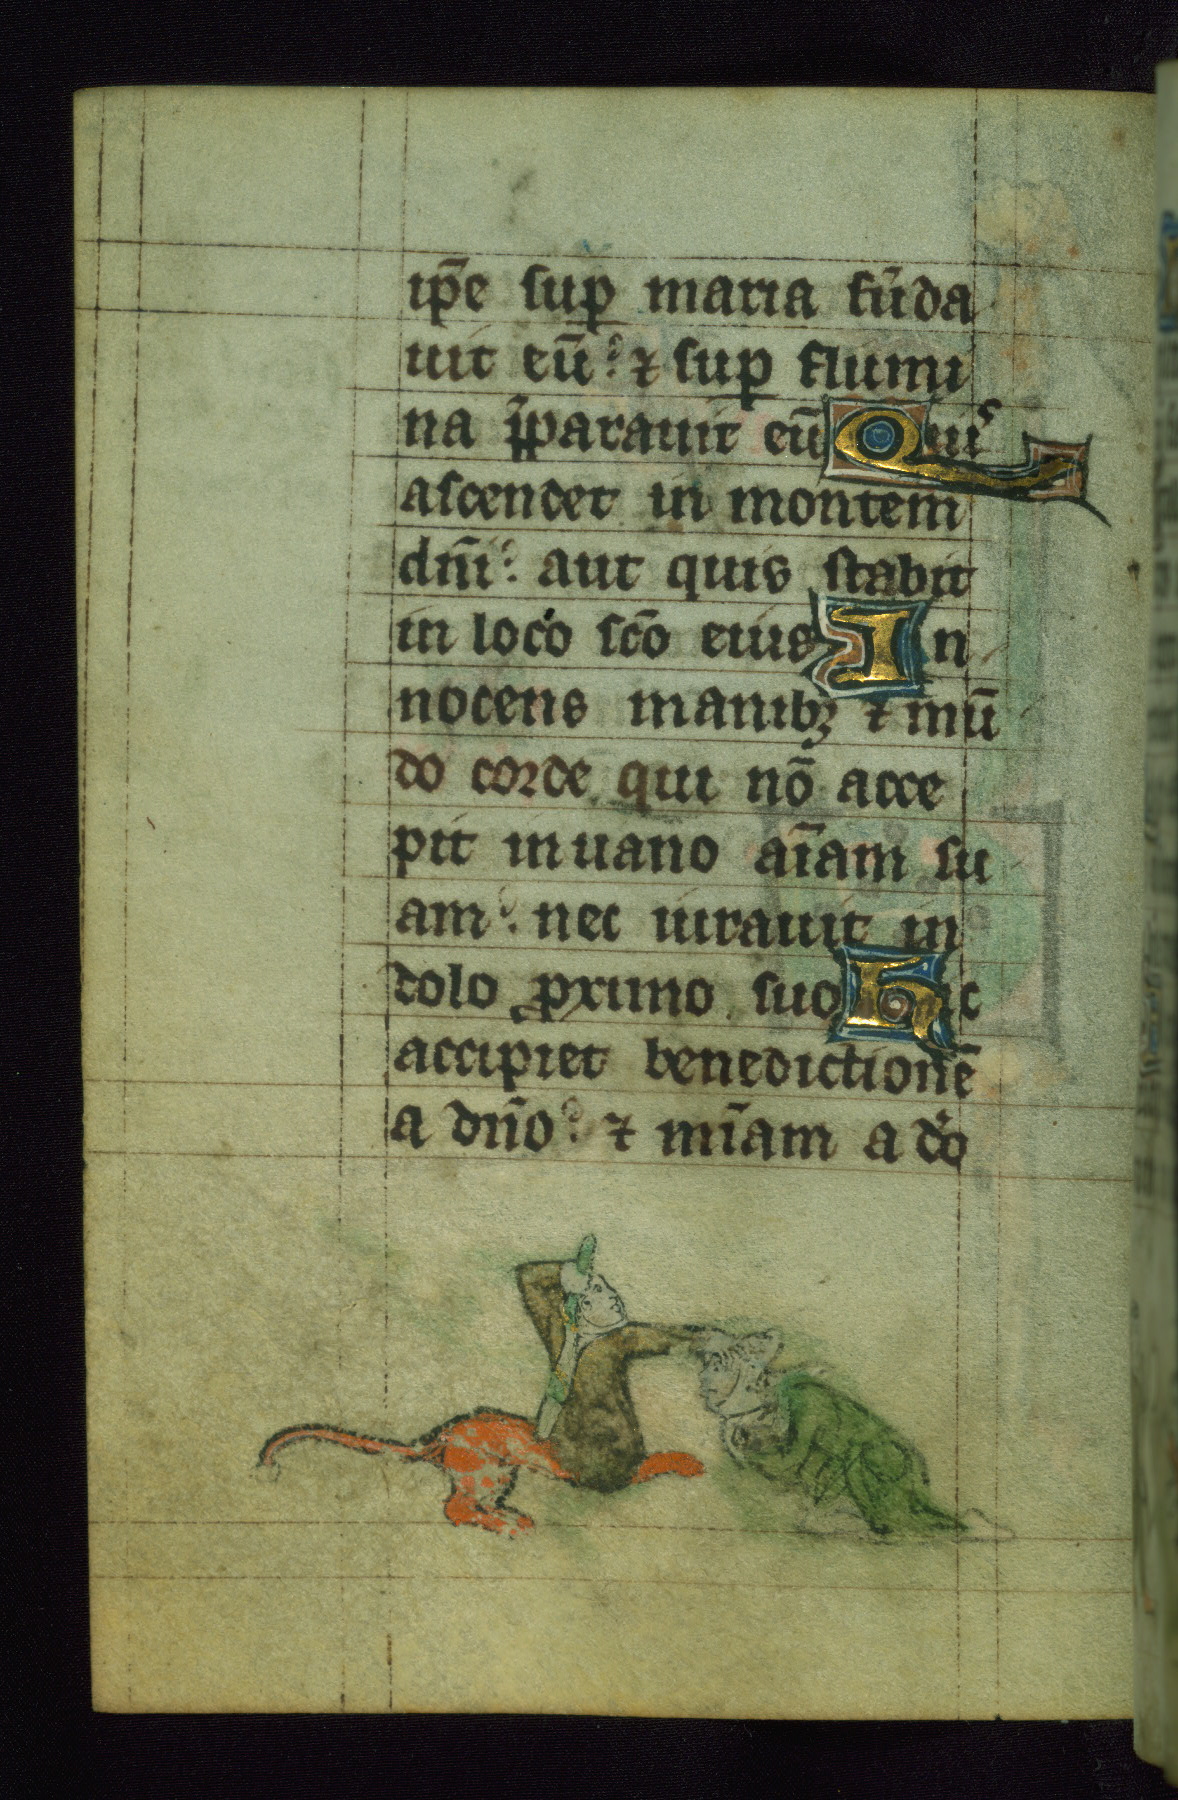 ip̄e sup̱ maria fūda
uit eū : ⁊ sup̱ flumi
na p̄parauit eū Quis
ascendet in montem
dn̄i : aut quis stabit
in loco sc̄o eius In
nocens manibꝫ ⁊ mū
do corde qui nō acce
pit in uano aīam su
am : nec iurauit in
dolo ꝓximo suo hic
accipiet benedictionē
a dn̄o : ⁊ mīam a do